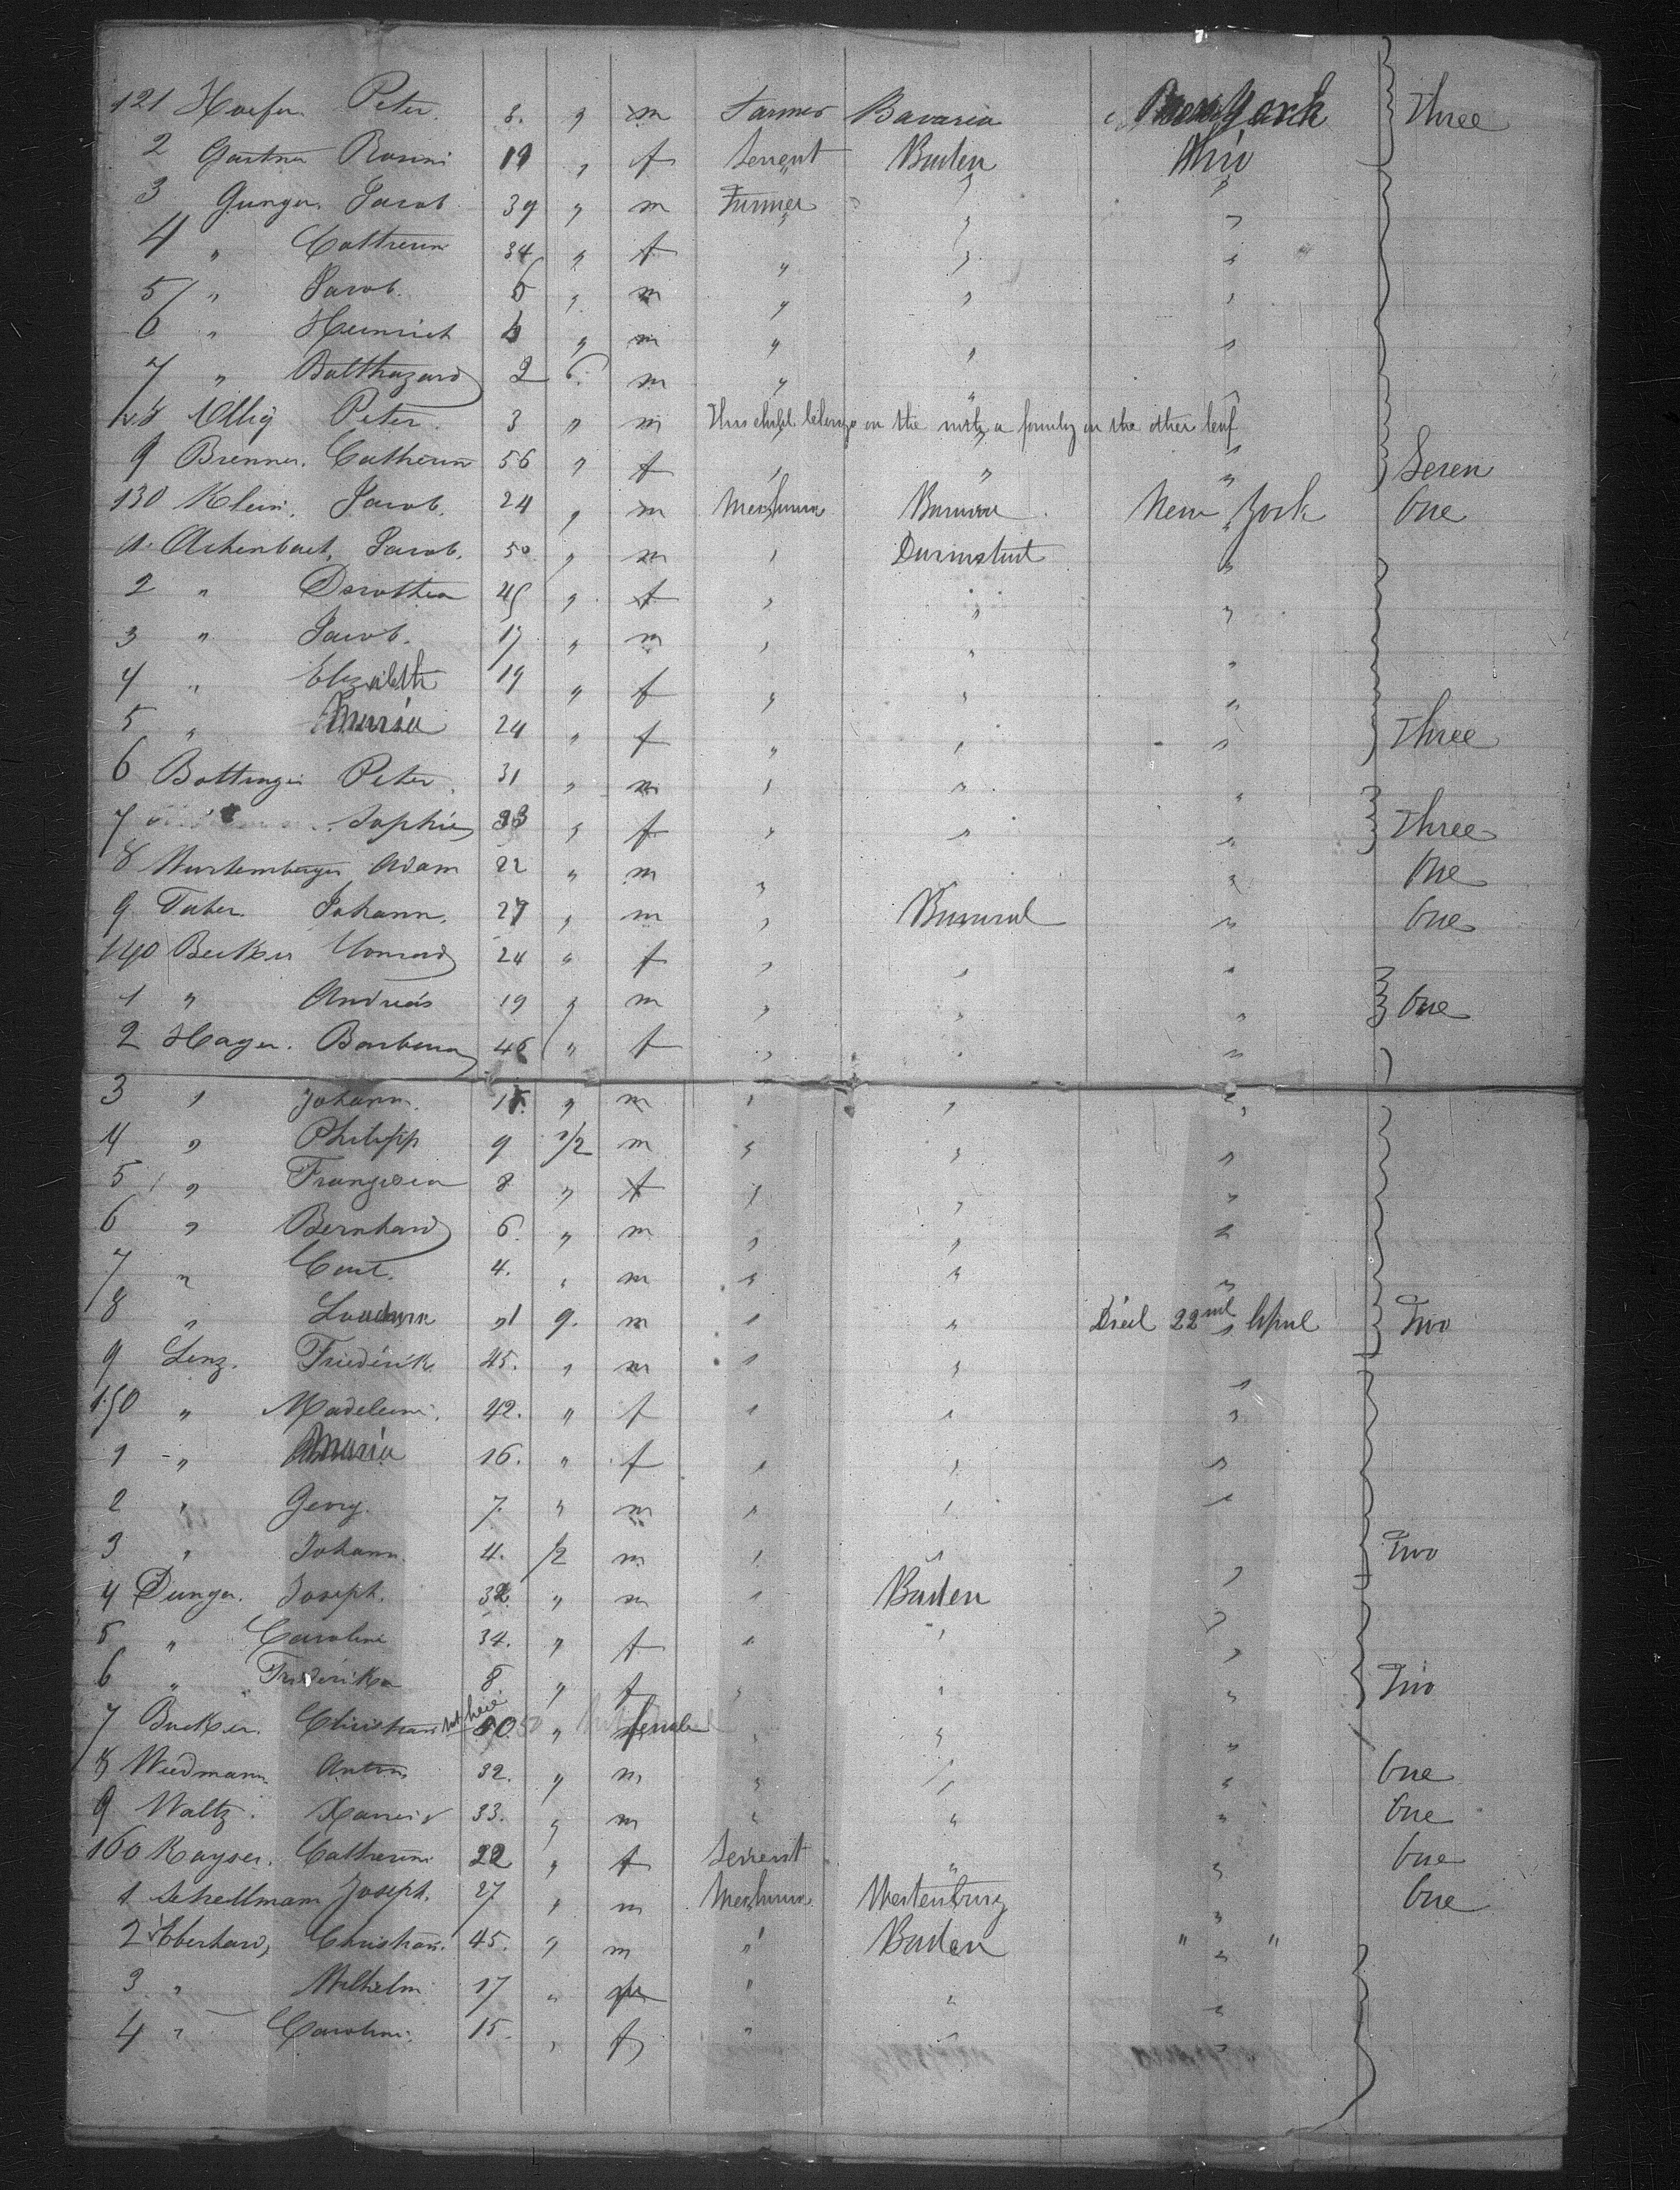 121 Hoefer Peter. 3. " m Farmer Bavaria New York Three
2 Gartner Rosine 19 " f Servent Baden Ohio
3 Gunger. Jacob 39 " m Farmer " "
4 " Cathrein 34 " f " " "
5 " Jacob. 6 " m " " "
6 " Heinrich 4 " m " " "
7 " Balthazard 2 6. m " " "
8 Ullig Peter. 3 " m This child belongs on the a family on the other leaf
9 Brenner. Catherin 56 " f " " " Seven
130 Klein. Jacob. 24 " m Mechanic Bavaria New York One
1. Achenbach, Jacob. 50 " m " Darmstadt "
2 " Dorothea 45 " f " " "
3 " Jacob. 17 " m " " "
4 " Elizabeth 19 " f " " "
5 " Maria 24 " f " " " Three
6 Bottinger Peter. 31 " m " " "
7 Sophie 33 " f " " " Three
8 Wurtemberger Adam 22 " m " " " One
9 Faber. Johann. 27 " m " " One
140 Becker Conrad 24 " f " " "
1 " Andreas 19 " m " " " One
2 Hager. Barbara 46 " f " " "
3 " Johann. " m " " "
4 " Philipp 9 1/2 m " " "
5 " Franzisca 8 " f " " "
6 " Bernhard 6. " m " " "
7 " Carl. 4. " m " " "
8 " " 9. m " " Died 22nd April Two
9 Lenz. Friederik 45. " m " " "
150 " Madeleine. 42. " f " " "
1 " Maria 16. " f " " "
2 " Georg. 7. " m " " "
3 " Johann. 4. 1/2 m " " Two
4 Dunger. Joseph. 32. " m " Baden "
5 " Caroline 34. " f " " "
6 " Friderika 8 " f " " " Two
7 Becker. Christian not here 50 " female " " "
8 Wiedmann Anton 32. " m " " " One
9 Waltz. Xavier 33. " m " " " One
160 Kayser. Catherine 22 " f Servent " " One
1 Schellmann Joseph. 27 " m Mechanic Wertenburg " One
2 Eberhard, Christian. 45. " m " Baden " " "
3. " Wilhelm 17 " m " " "
4 " Caroline. 15. " f " " "